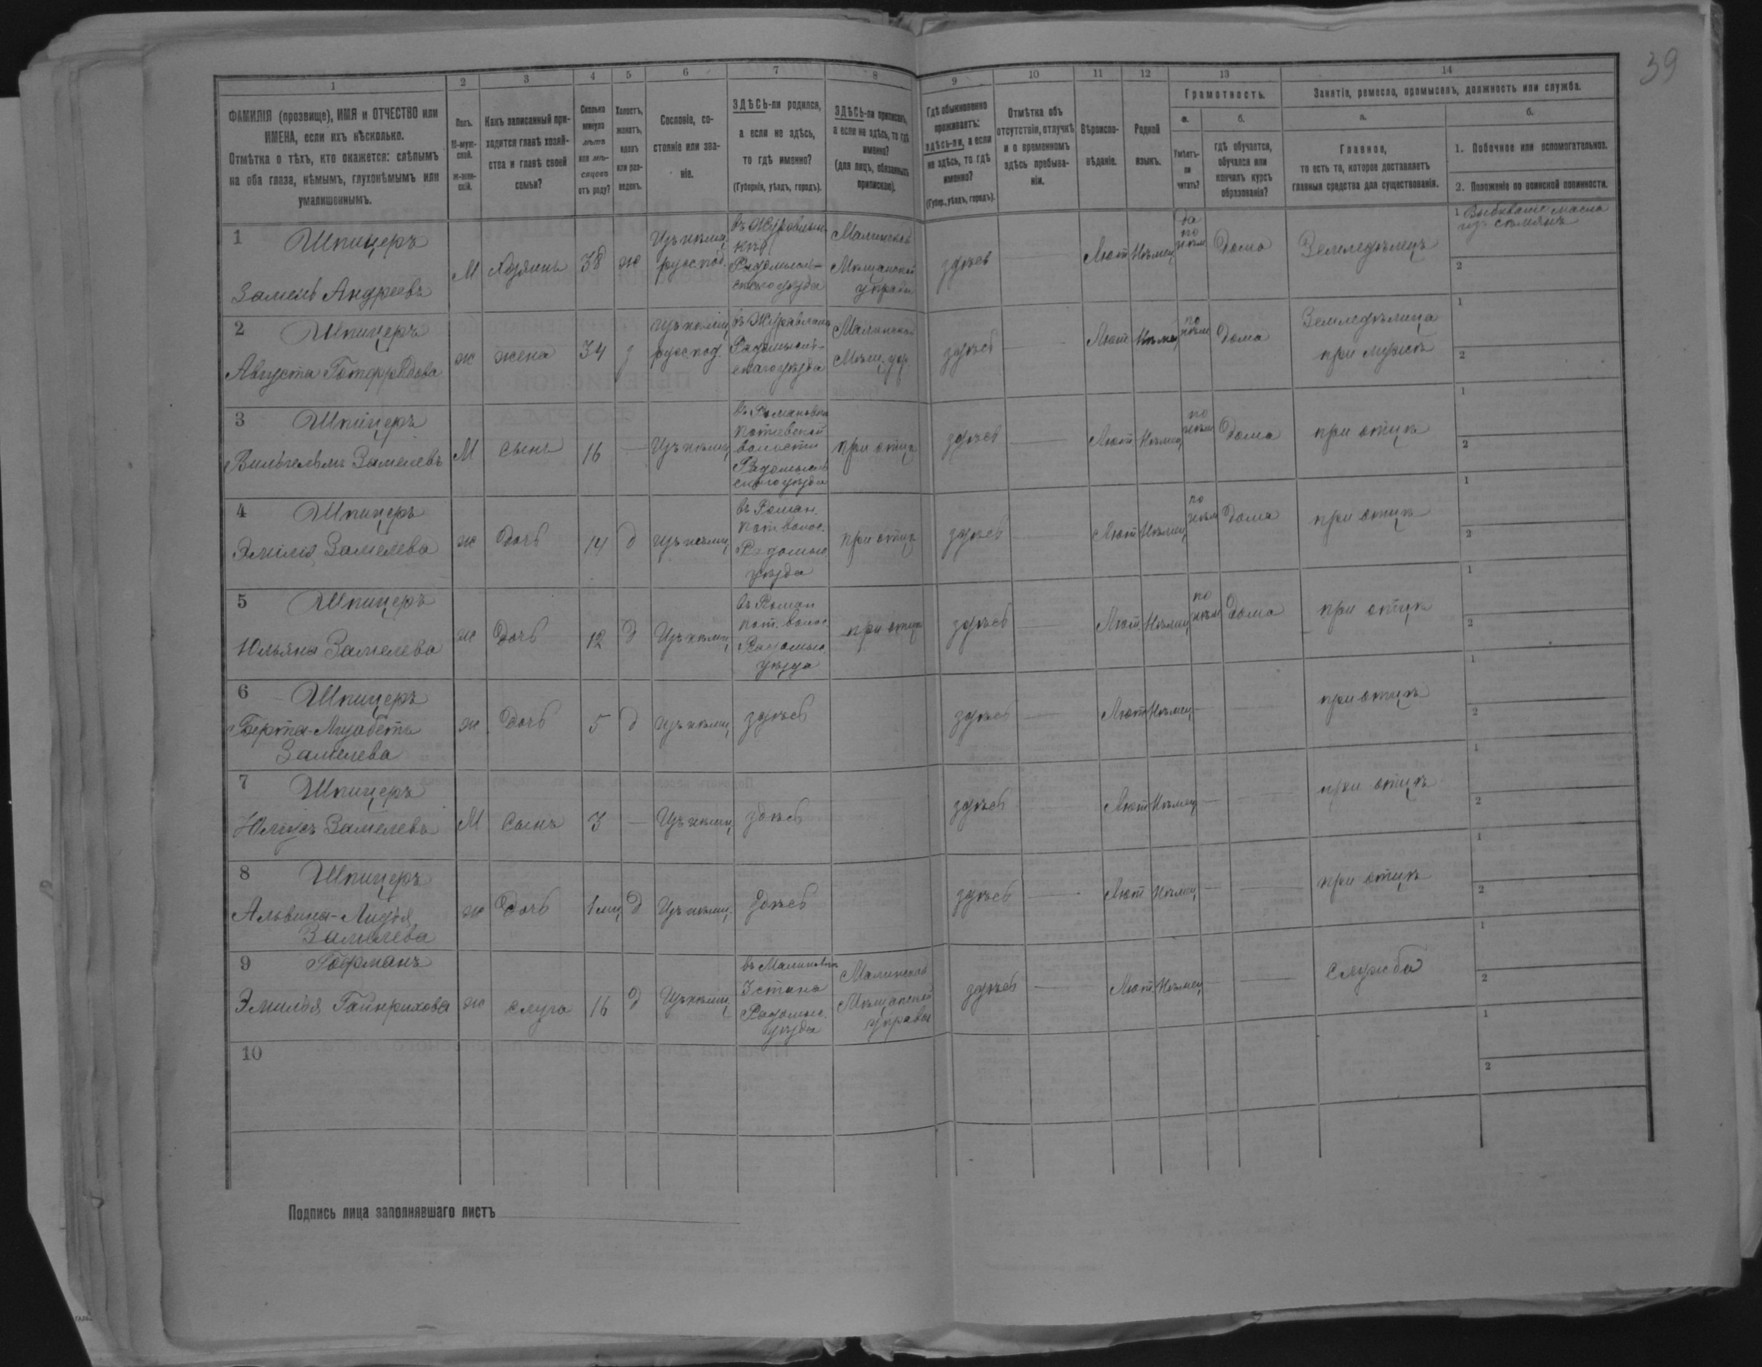 39
1 2 3 4 5 6 7 8 9 10 11 12 13 14
ФАМИЛІЯ (прозвище), ИМЯ и ОТЧЕСТВО или
ИМЕНА, если ихъ нѣсколько.
Отмѣтка о тѣхъ, кто окажется: слѣпымъ
на оба глаза, нѣмымъ, глухонѣмымъ или
умалишеннымъ.
Полъ.
М-муж-
ской.
Ж-жен-
скій.
Какъ записанный при-
ходится главѣ хозяй-
ства и главѣ своей
семьи?
Сколько
минуло
лѣтъ
или мѣ-
сяцевъ
отъ роду?
Холостъ,
женатъ,
вдовъ
или раз-
веденъ.
Сословіе, со-
стояніе или зва-
ніе.
ЗДѢСЬ-ли родился,
а если не здѣсь,
то гдѣ именно?
(Губернія, уѣздъ, городъ).
ЗДѢСЬ-ли приписанъ,
а если не здѣсь, то гдѣ
именно?
(для лицъ, обязанныхъ
припискою).
Гдѣ обыкновенно
проживаетъ:
здѣсь-ли, а если
не здѣсь, то гдѣ
именно?
(Губер., уѣздъ, городъ).
Отмѣтка объ
отсутствіи, отлучкѣ
и о временномъ
здѣсь пребыва-
ніи.
Вѣроиспо-
вѣданіе.
Родной
языкъ.
Грамотность.
а.
Умѣетъ-
ли
читать?
б.
гдѣ обучается,
обучался или
кончилъ курсъ
образованія?
Занятіе, ремесло, промыселъ, должность или служба.
а.
Главное,
то есть то, которое доставляетъ
главныя средства для существованія.
б.
1. Побочное или вспомогательное.
2. Положеніе по воинской повинности.
1 Шпицеръ
Замель Андреевъ
М хозяинъ 38 ж Изъ нѣмц. русс под.
Радомысль-
скаго уѣзда
Малинской
Мѣщанской
управы
здѣсь — Лют Нѣмец
да
по
нѣм
Дома Земледѣлецъ
1 Выбиванiе масла
изъ сѣмянъ
2
2 Шпицеръ
Августа Готфридова
ж жена 34 Изъ нѣмц. русс под.
Радомысль-
скаго уѣзда
Малинской
Мѣщ. упр
здѣсь — Лют Нѣмец по нѣм Дома
Земледѣлица
при мужѣ
1
2
3 Шпицеръ
Вильгельмъ Замелевъ
М сынъ 16 — Изъ нѣмц.
въ Романовкѣ
волости
Радомысль
скаго уѣзда
при отцѣ здѣсь — Лют Нѣмец по нѣм Дома при отцѣ
1
2
4 Шпицеръ
Эмілія Замелева
ж дочь 14 д Изъ нѣмц.
въ Роман.
пот. волос.
Радомыс
уѣзда
при отцѣ здѣсь — Лют Нѣмец по нѣм Дома при отцѣ
1
2
5 Шпицеръ
Юльяна Замелева
ж дочь 12 д Изъ нѣмц.
въ Роман
пот. волос
Радомыс
уѣзда
при отцѣ здѣсь — Лют Нѣмец по нѣм Дома при отцѣ
1
2
6 Шпицеръ
Берта-Лизабета
Замелева
ж дочь 5 д Изъ нѣмц. здѣсь здѣсь — Лют Нѣмец — — при отцѣ
1
2
7 Шпицеръ
Юліусъ Замелевъ
М сынъ 3 — Изъ нѣмц. здѣсь здѣсь Лют Нѣмец — — при отцѣ
1
2
8 Шпицеръ
Альвина-Лидія
Замелева
ж дочь 1 мц д Изъ нѣмц. здѣсь здѣсь — Лют Нѣмец — — при отцѣ
1
2
9 Горманъ
Эмилія Гайнрихова
ж слуга 16 д Изъ нѣмц.
Радомыс.
уѣзда
Малинской
Мѣщанской
управы
здѣсь — Лют Нѣмец — — служба
1
2
10
1
2
Подпись лица заполнявшаго листъ